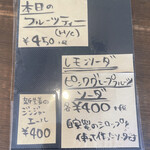 本日の
フルーツティー
(H/c)
¥450
レモンソーダ
ピンクグレープフルーツ
ソーダ
各¥400
自家製のシロップを
使って作ったソーダ
自家製の
ジン
ジャー
エール
¥400